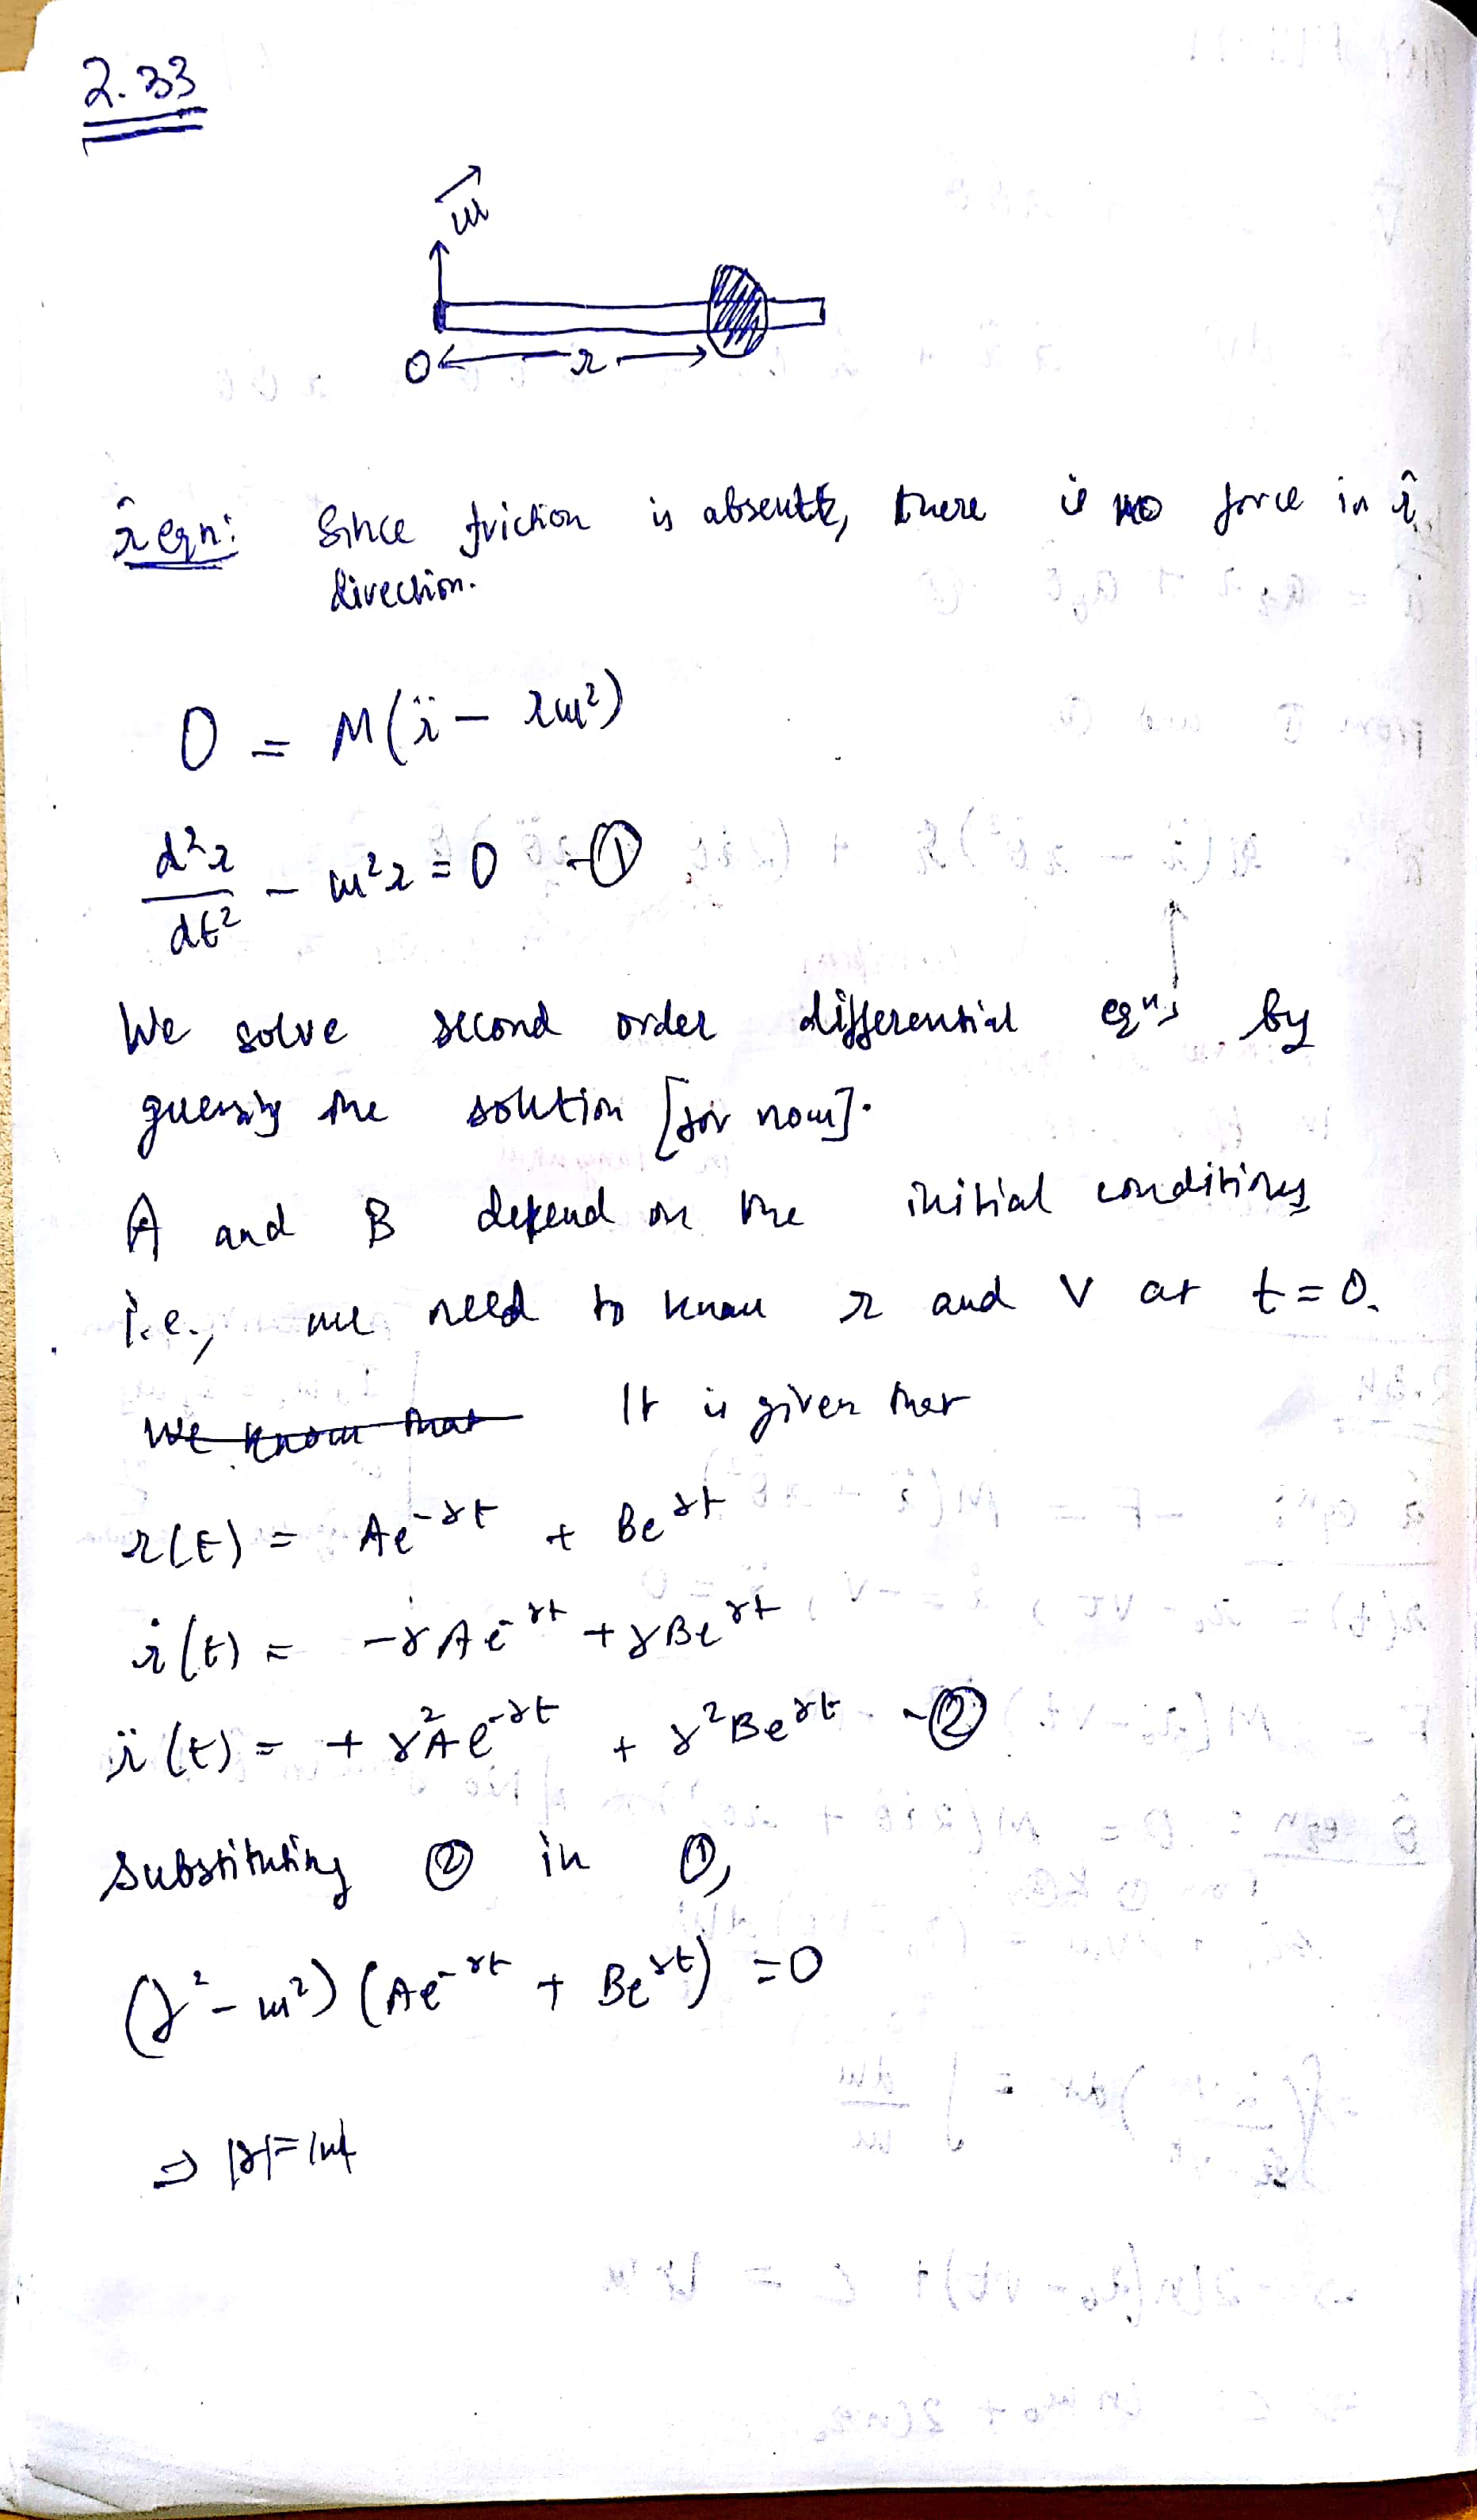 2.33
ω
O r
r̂ eqn: Since friction is absent, there is no force in r̂
direction.
0 = M(r̈ − rω²)
d²r/dt² − ω²r = 0 –①
We solve second order differential eqns by
guessing the solution [for now].
A and B depend on the initial conditions
i.e., we need to know r and v at t=0.
We know that It is given that
r(t) = Ae^(-γt) + Be^(γt)
ṙ(t) = −γAe^(-γt) + γBe^(γt)
r̈(t) = + γ²Ae^(-γt) + γ²Be^(γt) –②
Substituting ② in ①,
(γ² − ω²)(Ae^(-γt) + Be^(γt)) = 0
⇒ |γ|=|ω|